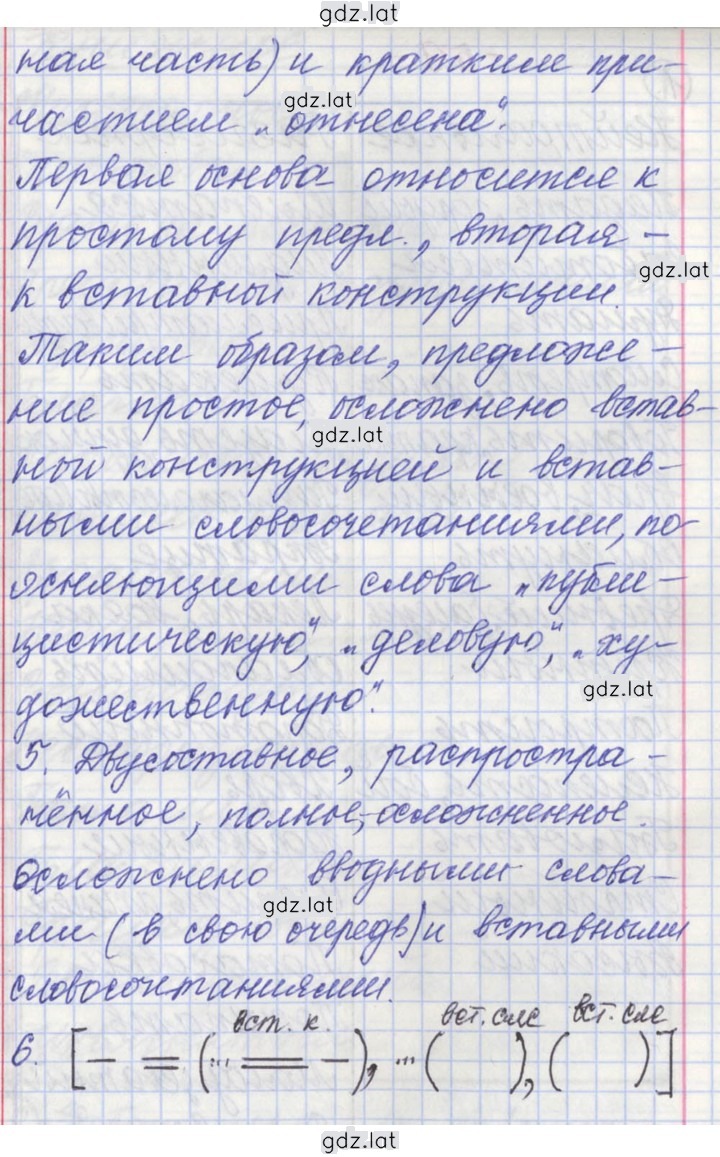 gdz.lat
ная часть) и кратким при-
gdz.lat
частием „отнесена“.
Первая основа относится к
простому предл., вторая –
gdz.lat
к вставной конструкции.
Таким образом, предложе-
ние простое, осложнено встав-
gdz.lat
ной конструкцией и встав-
ными словосочетаниями, по-
ясняющими слова „публи-
цистическую“, „деловую“, „ху-
gdz.lat
дожественную“.
5. Двусоставное, распростра-
нённое, полное, осложненное.
Осложнено вводными слова-
gdz.lat
ми (в свою очередь) и вставными
словосочетаниями.
вст. к. вст. слс вст. слс
6. [– = (... = –), ... ( ), ( )]
gdz.lat